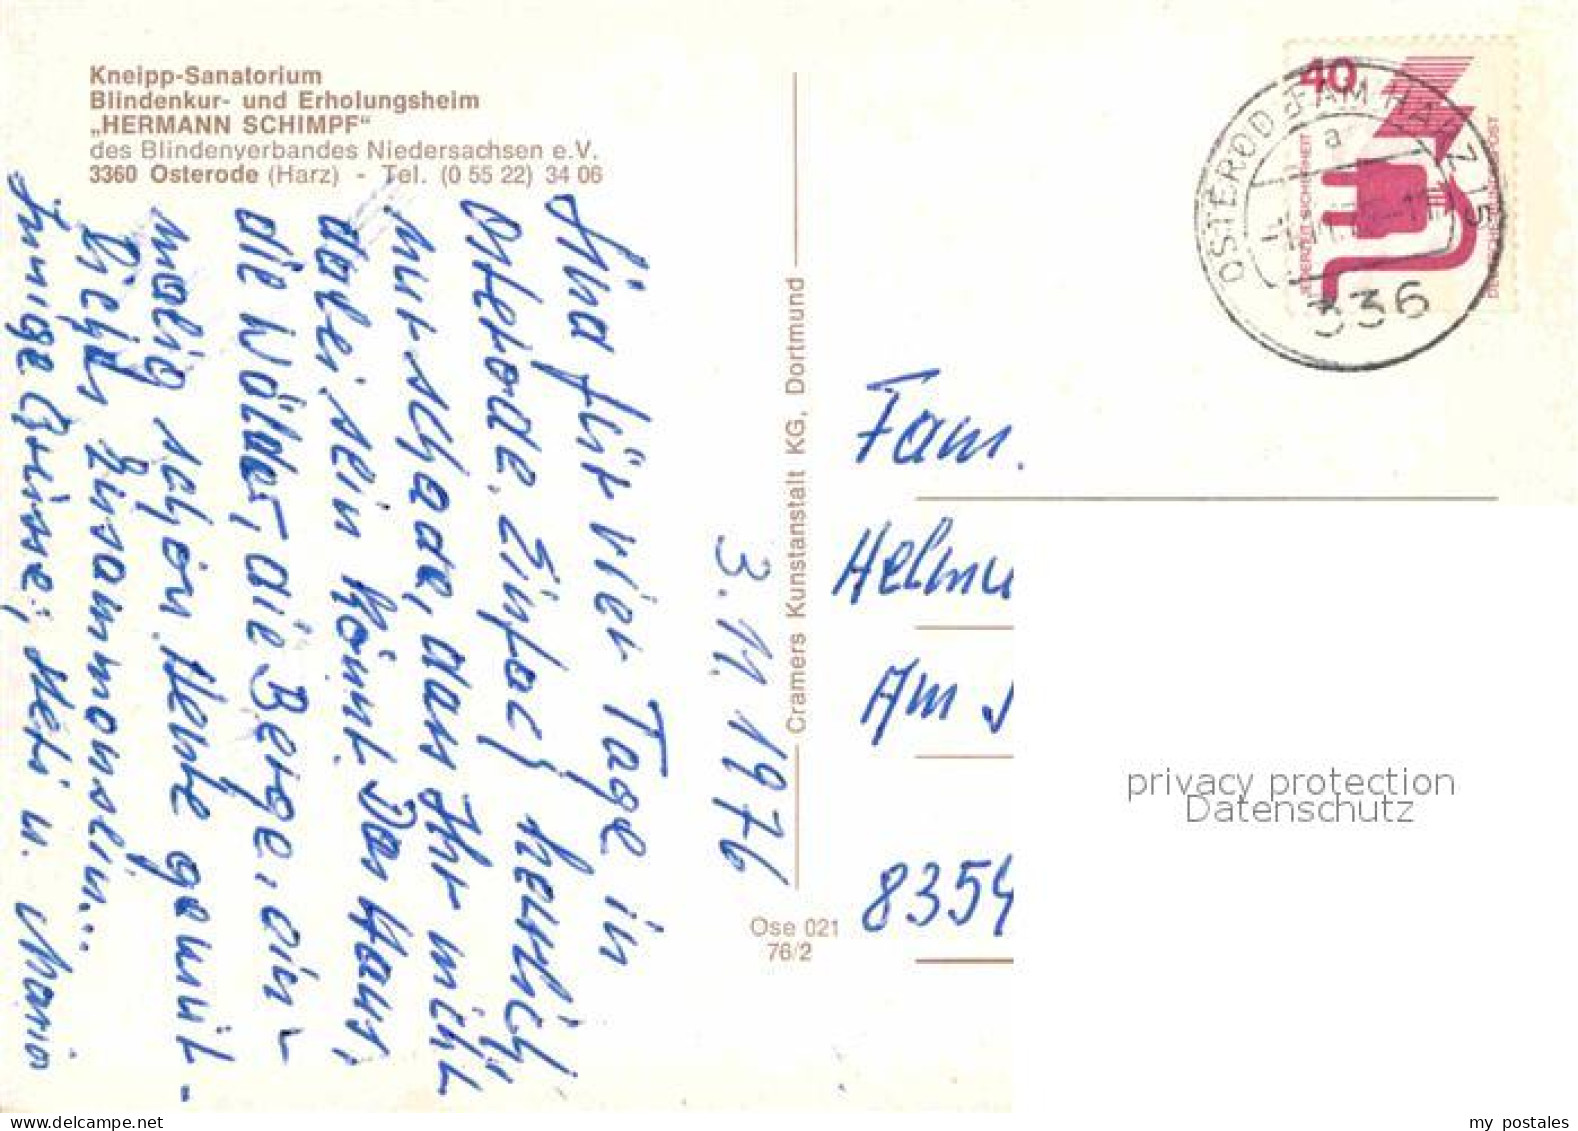 Kneipp-Sanatorium
Blindenkur- und Erholungsheim
„HERMANN SCHIMPF“
des Blindenverbandes Niedersachsen e.V.
3360 Osterode (Harz) - Tel. (0 55 22) 34 06
3.11.1976
Sind für vier Tage in
Osterode. Einfach herrlich
nur schade, dass Ihr nicht
dabei sein könnt. Das Haus,
die Wälder, die Berge, ein-
malig schön. Heute gemüt-
liches Zusammensein...
Innige Grüsse, Heti u. Mario
Cramers Kunstanstalt KG, Dortmund
Ose 021
76/2
40
JEDERZEIT SICHERHEIT
DEUTSCHE BUNDESPOST
OSTERODE AM HARZ 1
a
336
Fam.
Helmu
Am
8354
privacy protection
Datenschutz
my postales